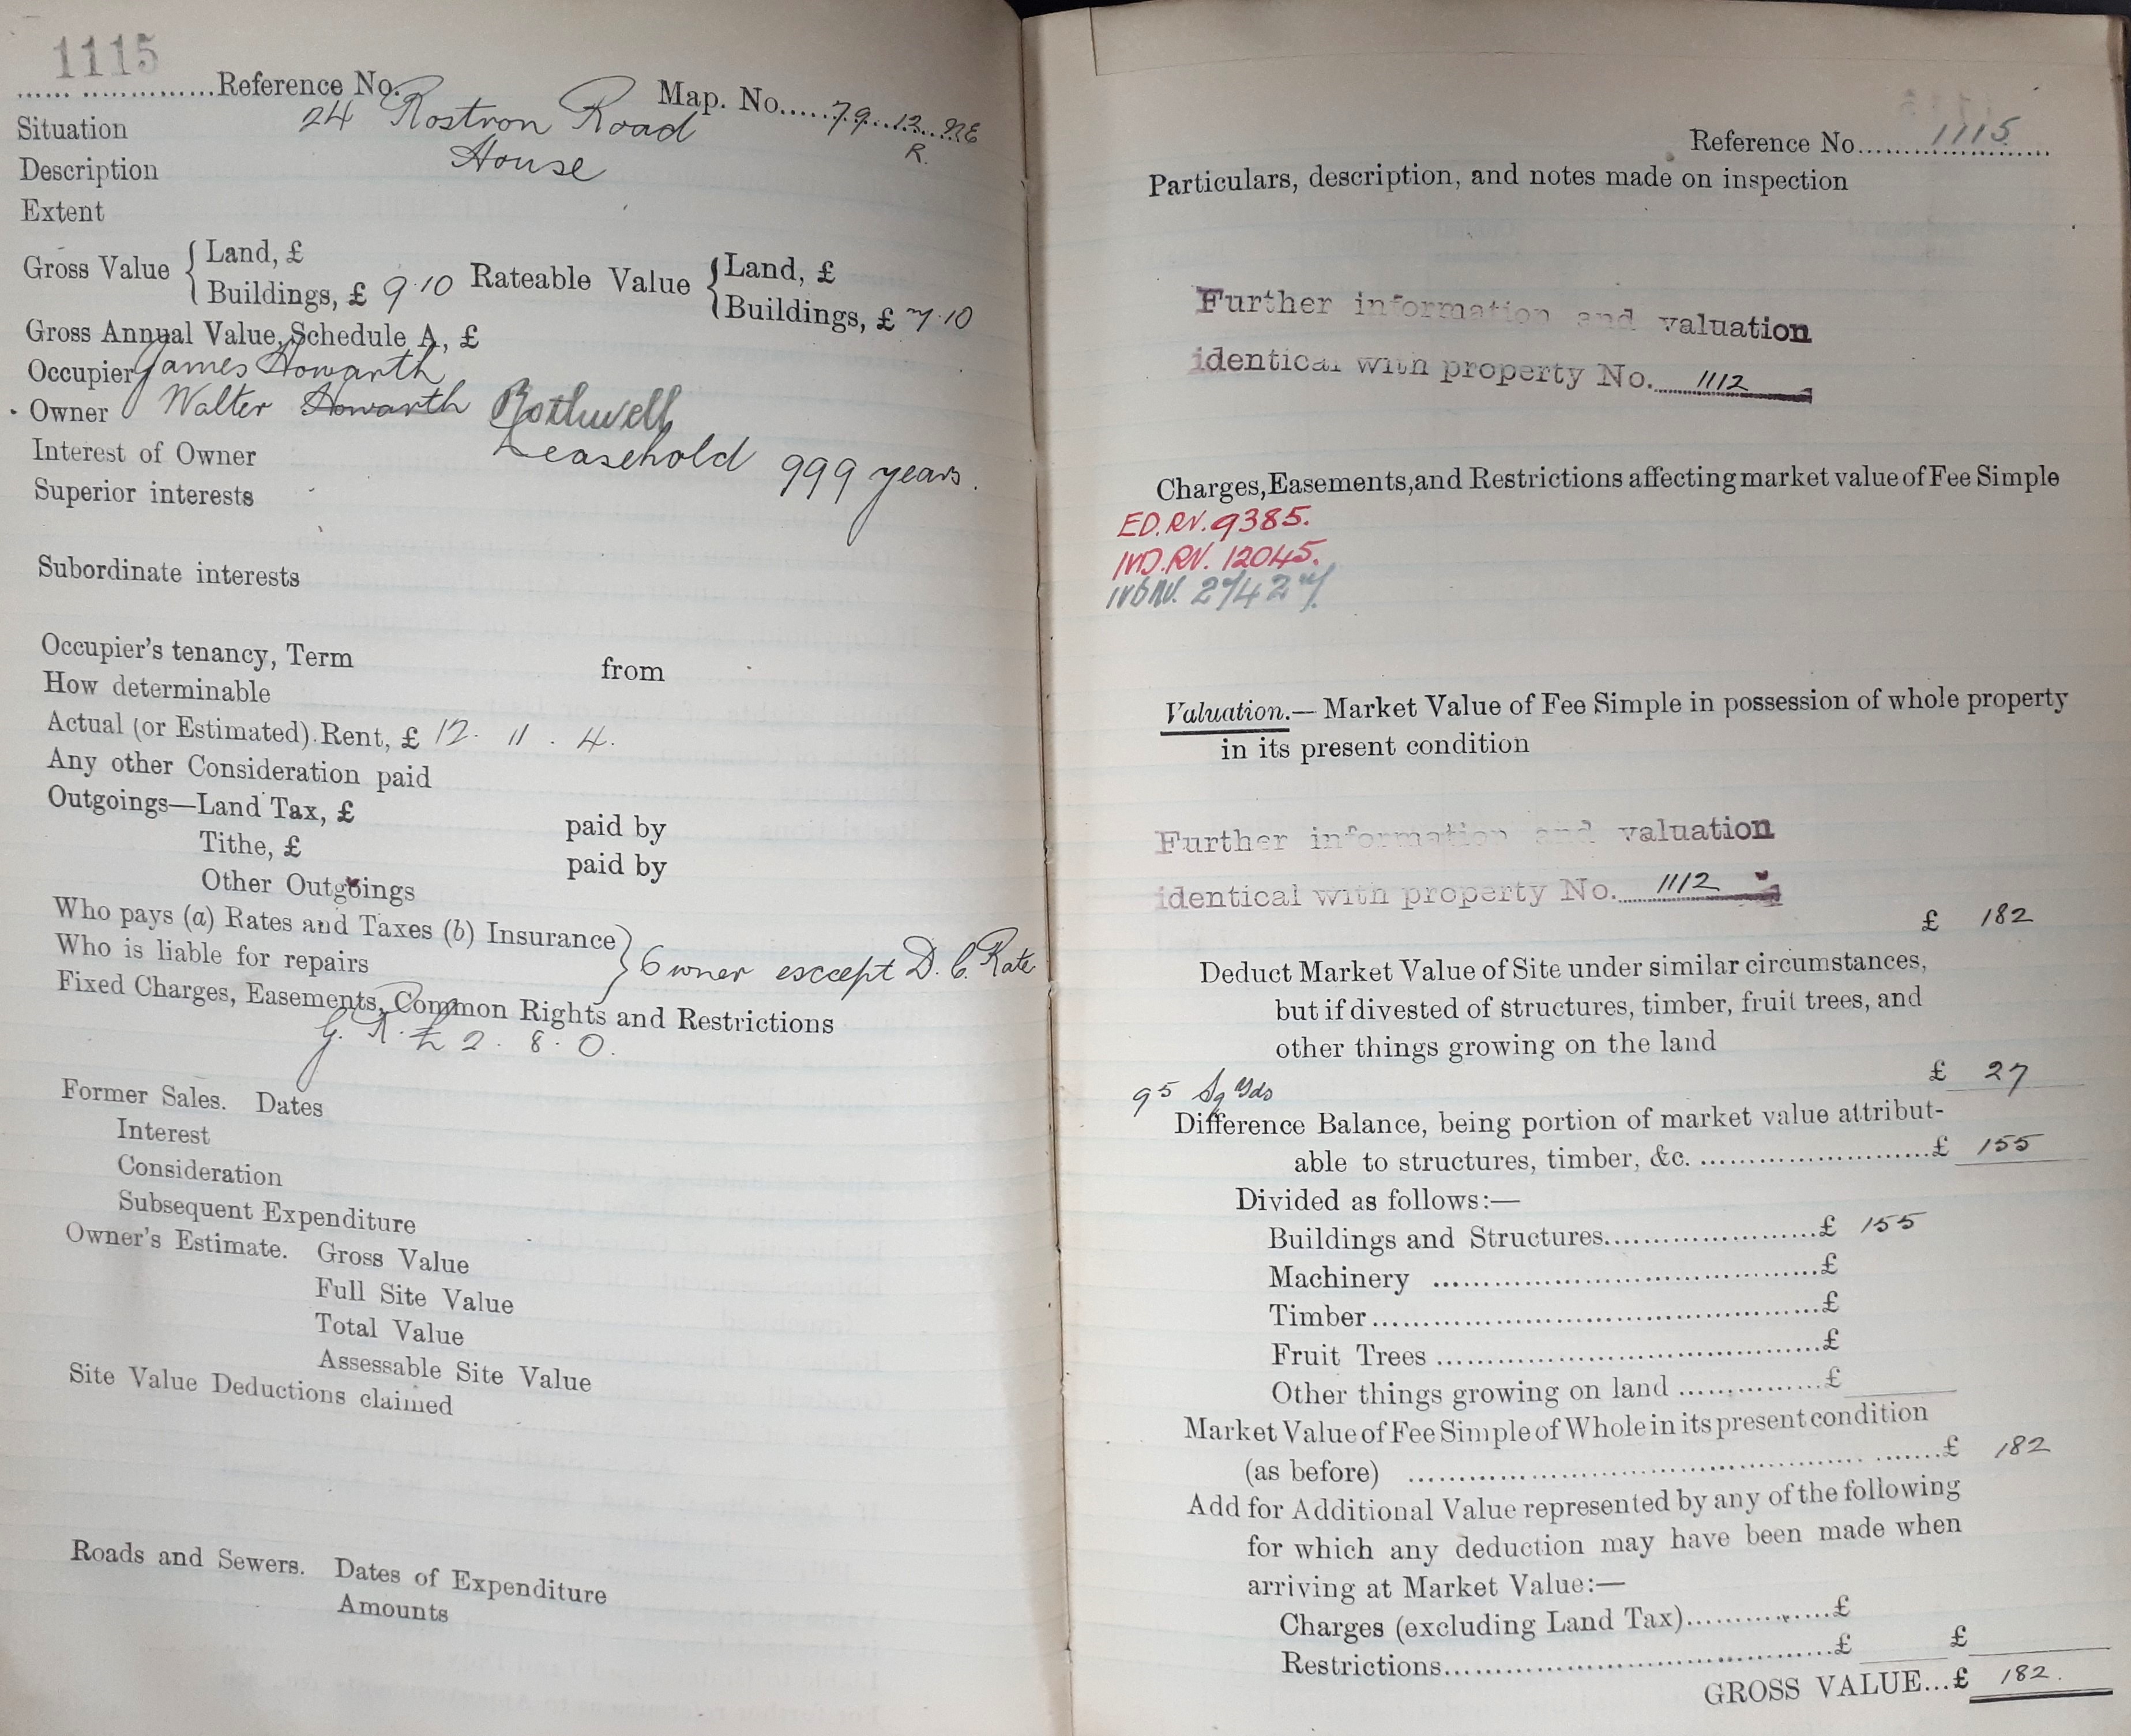 1115
Reference No. Map. No. 79.13.NE
R.
Situation 24 Rostron Road
Description House
Extent
Gross Value { Land, £ Rateable Value { Land, £
Buildings, £ 9.10 Buildings, £ 7.10
Gross Annual Value, Schedule A, £
Occupier James Howarth
Owner Walter Howarth Rothwell
Interest of Owner Leasehold 999 years.
Superior interests
Subordinate interests
Occupier's tenancy, Term from
How determinable
Actual (or Estimated) Rent, £ 12. 11. 4.
Any other Consideration paid
Outgoings—Land Tax, £ paid by
Tithe, £ paid by
Other Outgoings
Who pays (a) Rates and Taxes (b) Insurance
Who is liable for repairs } Owner except D. C. Rate
Fixed Charges, Easements, Common Rights and Restrictions
G. R. £ 2. 8. 0.
Former Sales. Dates
Interest
Consideration
Subsequent Expenditure
Owner's Estimate. Gross Value
Full Site Value
Total Value
Assessable Site Value
Site Value Deductions claimed
Roads and Sewers. Dates of Expenditure
Amounts
Reference No. 1115
Particulars, description, and notes made on inspection
Further information and valuation
identical with property No. 1112
Charges, Easements, and Restrictions affecting market value of Fee Simple
ED.RV. 9385.
IVD.RV. 12045.
27427
Valuation.— Market Value of Fee Simple in possession of whole property
in its present condition
Further information and valuation
identical with property No. 1112
£ 182
Deduct Market Value of Site under similar circumstances,
but if divested of structures, timber, fruit trees, and
other things growing on the land
£ 27
95 Sq Yds
Difference Balance, being portion of market value attribut-
able to structures, timber, &c. £ 155
Divided as follows:—
Buildings and Structures £ 155
Machinery £
Timber £
Fruit Trees £
Other things growing on land £
Market Value of Fee Simple of Whole in its present condition
(as before) £ 182
Add for Additional Value represented by any of the following
for which any deduction may have been made when
arriving at Market Value:—
Charges (excluding Land Tax) £
Restrictions £ £
GROSS VALUE...£ 182.